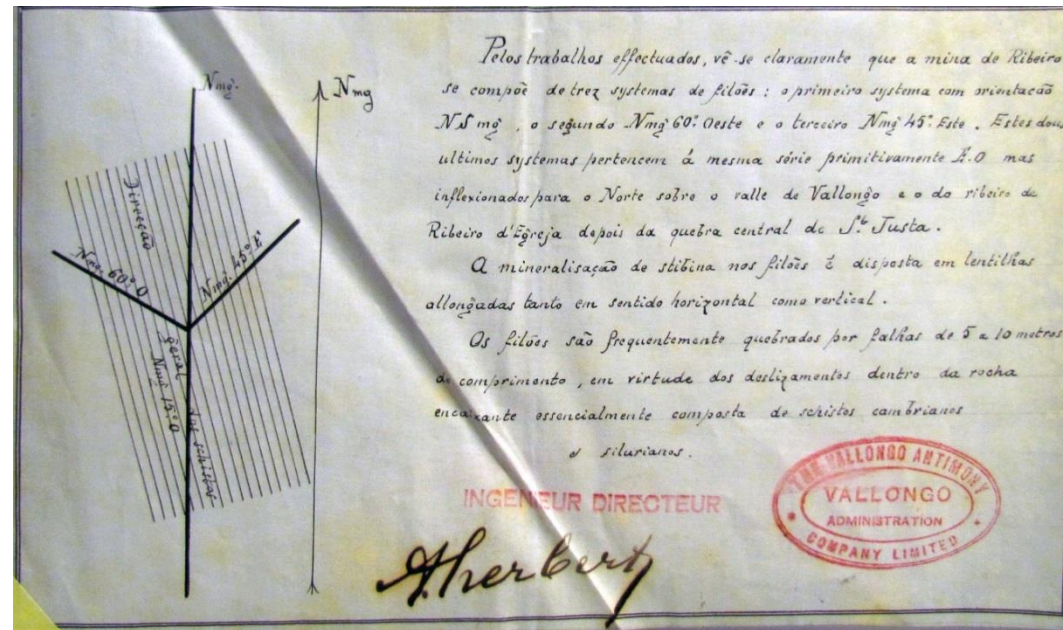 Nmg.
Nmg
Direcção
Nmg. 60º. O
Nmg. 45º. E
geral
Nmg 15º. O
dos schistos
Pelos trabalhos effectuados, vê-se claramente que a mina de Ribeiro
se compõe de trez systemas de filões : o primeiro systema com orientação
NS mg, o segundo Nmg 60º. Oeste e o terceiro Nmg 45º. Este. Estes dous
ultimos systemas pertencem á mesma série primitivamente E.O mas
inflexionados para o Norte sobre o valle de Vallongo e o do ribeiro de
Ribeiro d'Egreja depois da quebra central de Sta Justa.
A mineralisação de stibina nos filões é disposta em lentilhas
allongadas tanto em sentido horizontal como vertical.
Os filões são frequentemente quebrados por falhas de 5 a 10 metros
de comprimento, em virtude dos deslizamentos dentro da rocha
encaixante essencialmente composta de schistos cambrianos
e silurianos.
INGENIEUR DIRECTEUR
A herbert
THE VALLONGO ANTIMONY
VALLONGO
ADMINISTRATION
COMPANY LIMITED